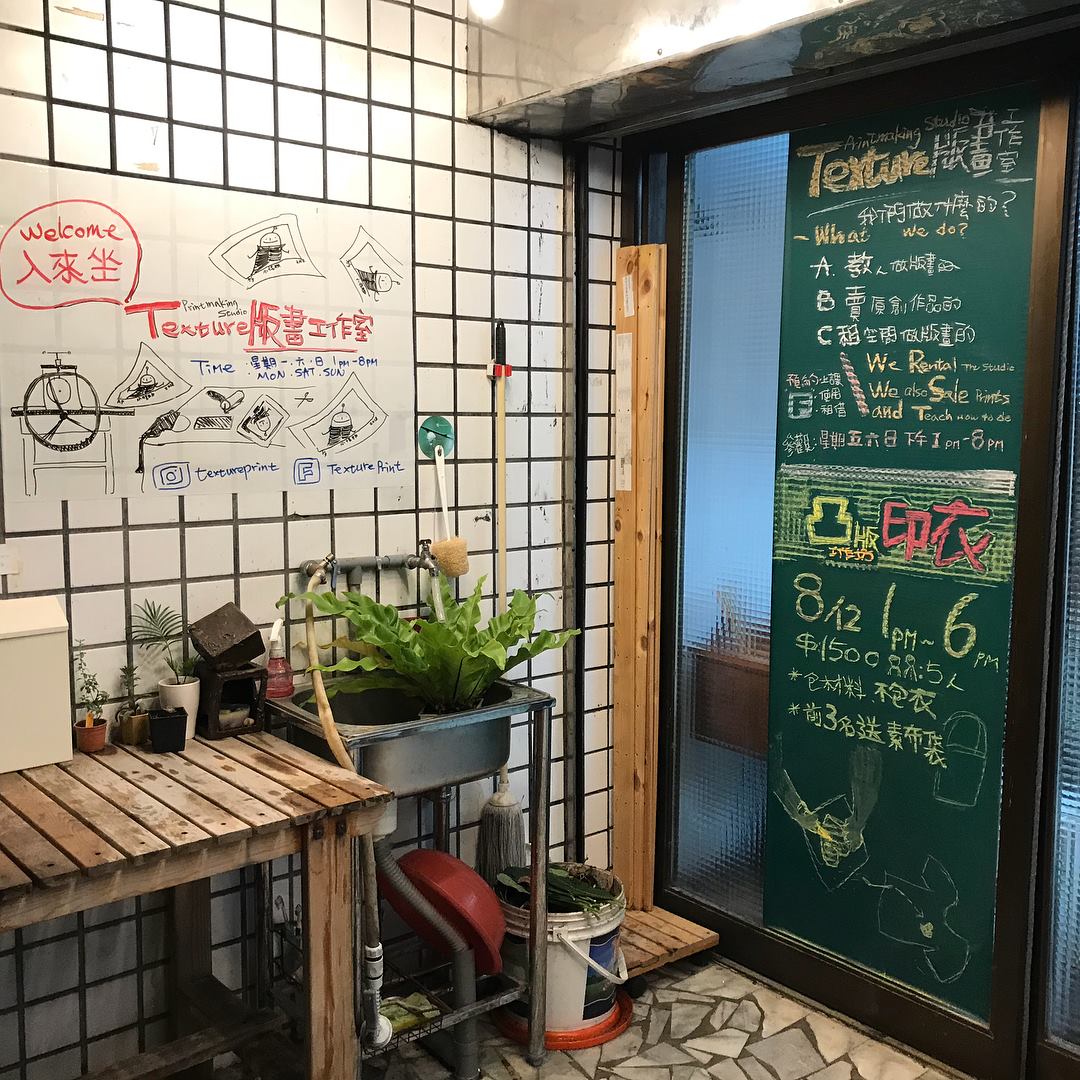 welcome
入來坐
Printmaking
Studio
Texture版畫工作室
Time：星期一．六．日 1pm-8pm
MON. SAT. SUN
textureprint
Texture Print
Printmaking Studio
Texture版畫工作室
我們做什麼的？
-What we do?
A. 教人做版畫的
B 賣原創作品的
C 租空間做版畫的
We Rental The Studio
We also Sale Prints
and Teach How to do
預約上機
使用
租借
參觀：星期五六日 下午1pm-8pm
凸版
工作坊
印衣
8/12 1pm~6pm
$1500 :5人
*包材料.
*前3名送素布袋